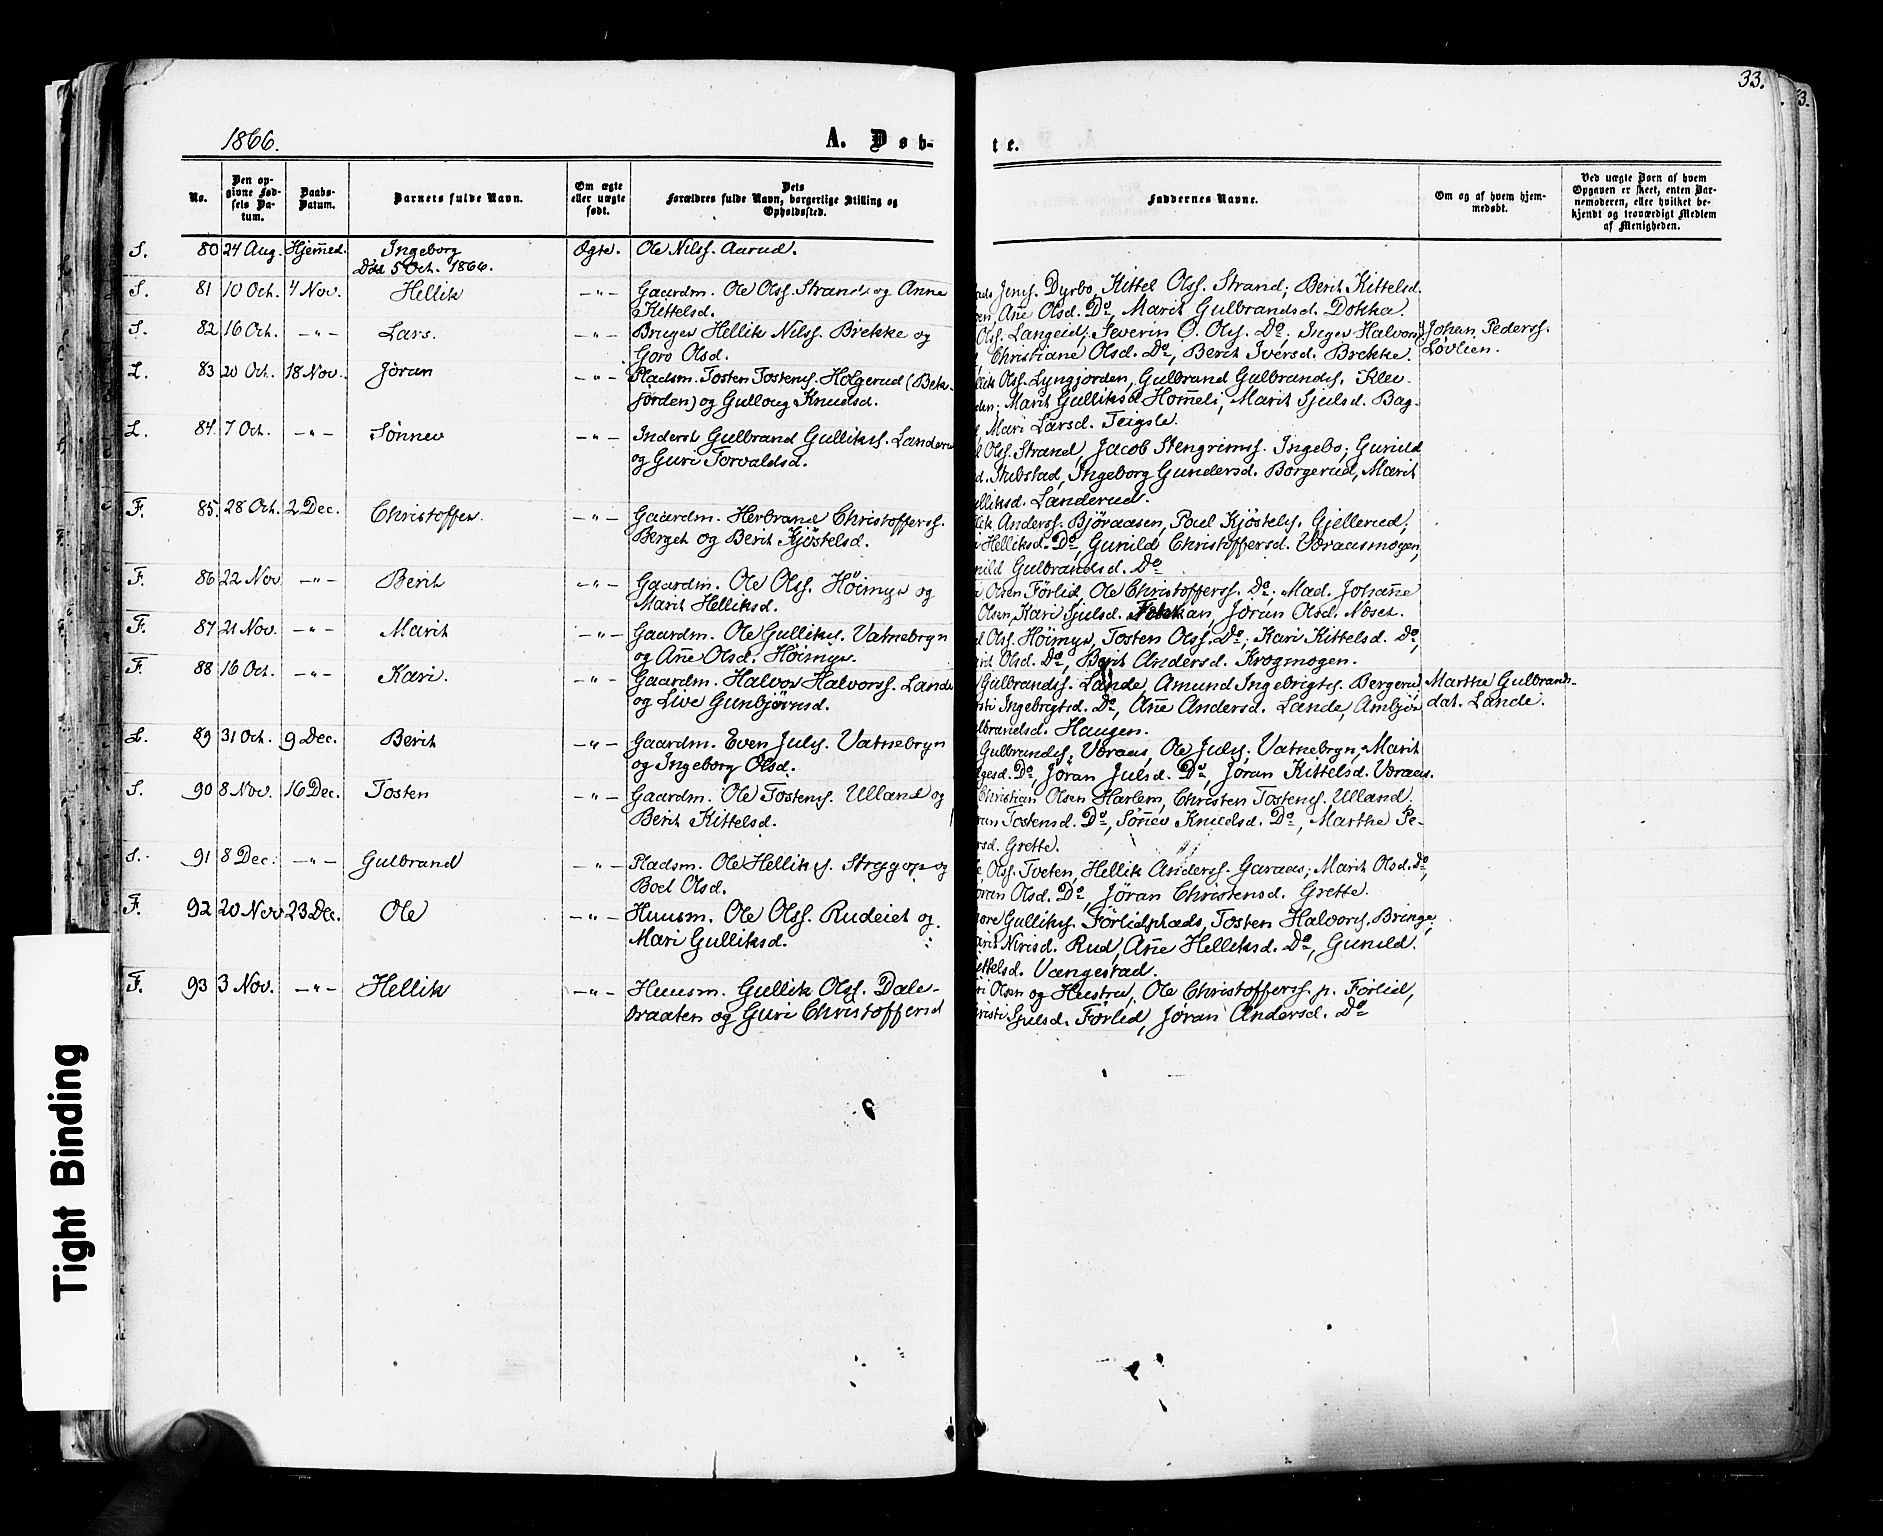 33.
3.
1866.
A. Døb-
te.
No.
Den op-
givne Fød-
sels Da-
tum.
Daabs-
Datum.
Barnets fulde Navn.
Om ægte
eller uægte
født.
Dets
Forældres fulde Navn, borgerlige Stilling og
Opholdssted.
Faddernes Navne.
Om og af hvem hjem-
medøbt.
Ved uægte Børn af hvem
Opgaven er skeet, enten Bar-
nemoderen, eller hvilket be-
kjendt og troværdigt Medlem
af Menigheden.
S. 80 24 Aug. Hjemmed. Ingeborg Ægte. Ole Nilss. Aarud.
Død 5 Oct. 1866.
S. 81 10 Oct. 4 Nov. Hellik -"- Gaardm. Ole Olss. Strand og Anne
Kittelsd.
Jens. Dyrbo, Kittel Olss. Strand; Berit Kittelsd.
Ane Olsd. Do, Marit Gulbrandsd. Dokka.
S. 82 16 Oct. -"- Lars. -"- Bruger Hellik Nilss. Brekke og
Goro Olsd.
Olss. Langeid; Severin O. Ols. Do, Inger Halvorsd.
Christiane Olsd. Do, Berit Iversd. Brekke.
Johan Pederss.
Løvlien.
L. 83 20 Oct. 18 Nov. Jøran -"- Pladsm. Tosten Tostens. Holgerud (Bek-
jorden) og Gulloug Knudsd.
Olss. Lyngjorden, Gulbrand Gulbrands. Klev-
den; Marit Gulliksd. Hommeli, Marit Sjulsd. Bag-
Mari Larsd. Teigsle.
L. 84 7 Oct. -"- Sønnev -"- Inderst Gulbrand Gulliks. Landerud
og Guri Torvaldsd.
Olss. Strand, Jacob Stengrimss. Ingebo; Gunild
Stubstad, Ingeborg Gundersd. Borgerud, Marit
Gulliksd. Landerud.
F. 85 28 Oct. 2 Dec. Christoffer. -"- Gaardm. Herbrand Christofferss.
Berget og Berit Kjøstelsd.
Anderss. Bjøraasen, Poul Kjøstels. Gjellerud;
Helliksd. Do, Gunild Christoffersd. Vøraasmogen,
Gulbrandsd. Do
F. 86 22 Nov -"- Berit -"- Gaardm. Ole Olss. Høimyr og
Marit Helliksd.
Olsen Førlid, Ole Christofferss. Do; Mad. Johanne
Olsen, Kari Sjulsd. Jøran Olsd. Noset.
F. 87 21 Nov. -"- Marit -"- Gaardm. Ole Gulliks. Vatnebryn
og Ane Olsd. Høimyr.
Olss. Høimyr, Tosten Olss. Do; Kari Kittelsd. Do,
Olsd. Do, Berit Andersd. Krogmogen.
F. 88 16 Oct. -"- Kari. -"- Gaardm. Halvor Halvorss. Lande
og Live Gunbjørnsd.
Gulbrandss. Lande, Amund Ingebrigts. Bergerud
Ingebrigtsd. Do, Ane Andersd. Lande, Ambjør
Gulbrandsd. Haugen.
Marthe Gulbrands-
dat. Lande.
L. 89 31 Oct. 9 Dec. Berit -"- Gaardm. Even Juls. Vatnebryn
og Ingeborg Olsd.
Gulbrands. Vøraas, Ole Juls. Vatnebryn; Marit
Do, Jøran Julsd. Do, Jøran Kittelsd. Vøraas.
S. 90 8 Nov. 16 Dec. Tosten -"- Gaardm. Ole Tostens. Ulland og
Berit Kittelsd.
Christian Olsen Harlem, Christen Tostens. Ulland.
Tostensd. Do, Sønnev Knudsd. Do, Marthe Pe-
rsd. Grette.
S. 91 8 Dec. -"- Gulbrand -"- Pladsm. Ole Helliks. Strygop og
Boel Olsd.
Olss. Tveten, Hellik Anderss. Garaas; Marit Olsd. Do,
Jøran Olsd. Do, Jøran Christensd. Grette.
F. 92 20 Nov 23 Dec. Ole -"- Huusm. Ole Olss. Rudeiet og
Mari Gulliksd.
Tore Gulliks. Førlidsplads, Tosten Halvors. Bringe,
Nirisd. Rud, Ane Helliksd. Do, Gunild
Kittelsd. Vangestad.
F. 93 3 Nov. -"- Hellik -"- Huusm. Gullik Olss. Dale-
braaten og Guri Christoffersd
Olsen og Hustru, Ole Christofferss. p. Førlid,
Sjulsd. Førlid, Jøran Andersd. Do
Tight Binding